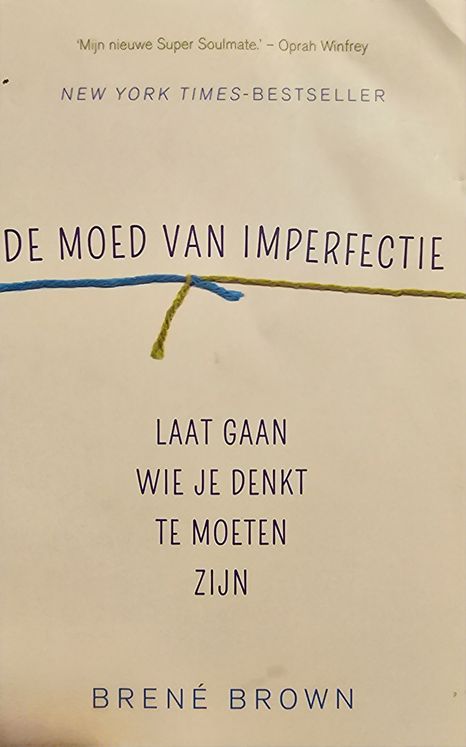 'Mijn nieuwe Super Soulmate.' – Oprah Winfrey
NEW YORK TIMES-BESTSELLER
DE MOED VAN IMPERFECTIE
LAAT GAAN
WIE JE DENKT
TE MOETEN
ZIJN
BRENÉ BROWN